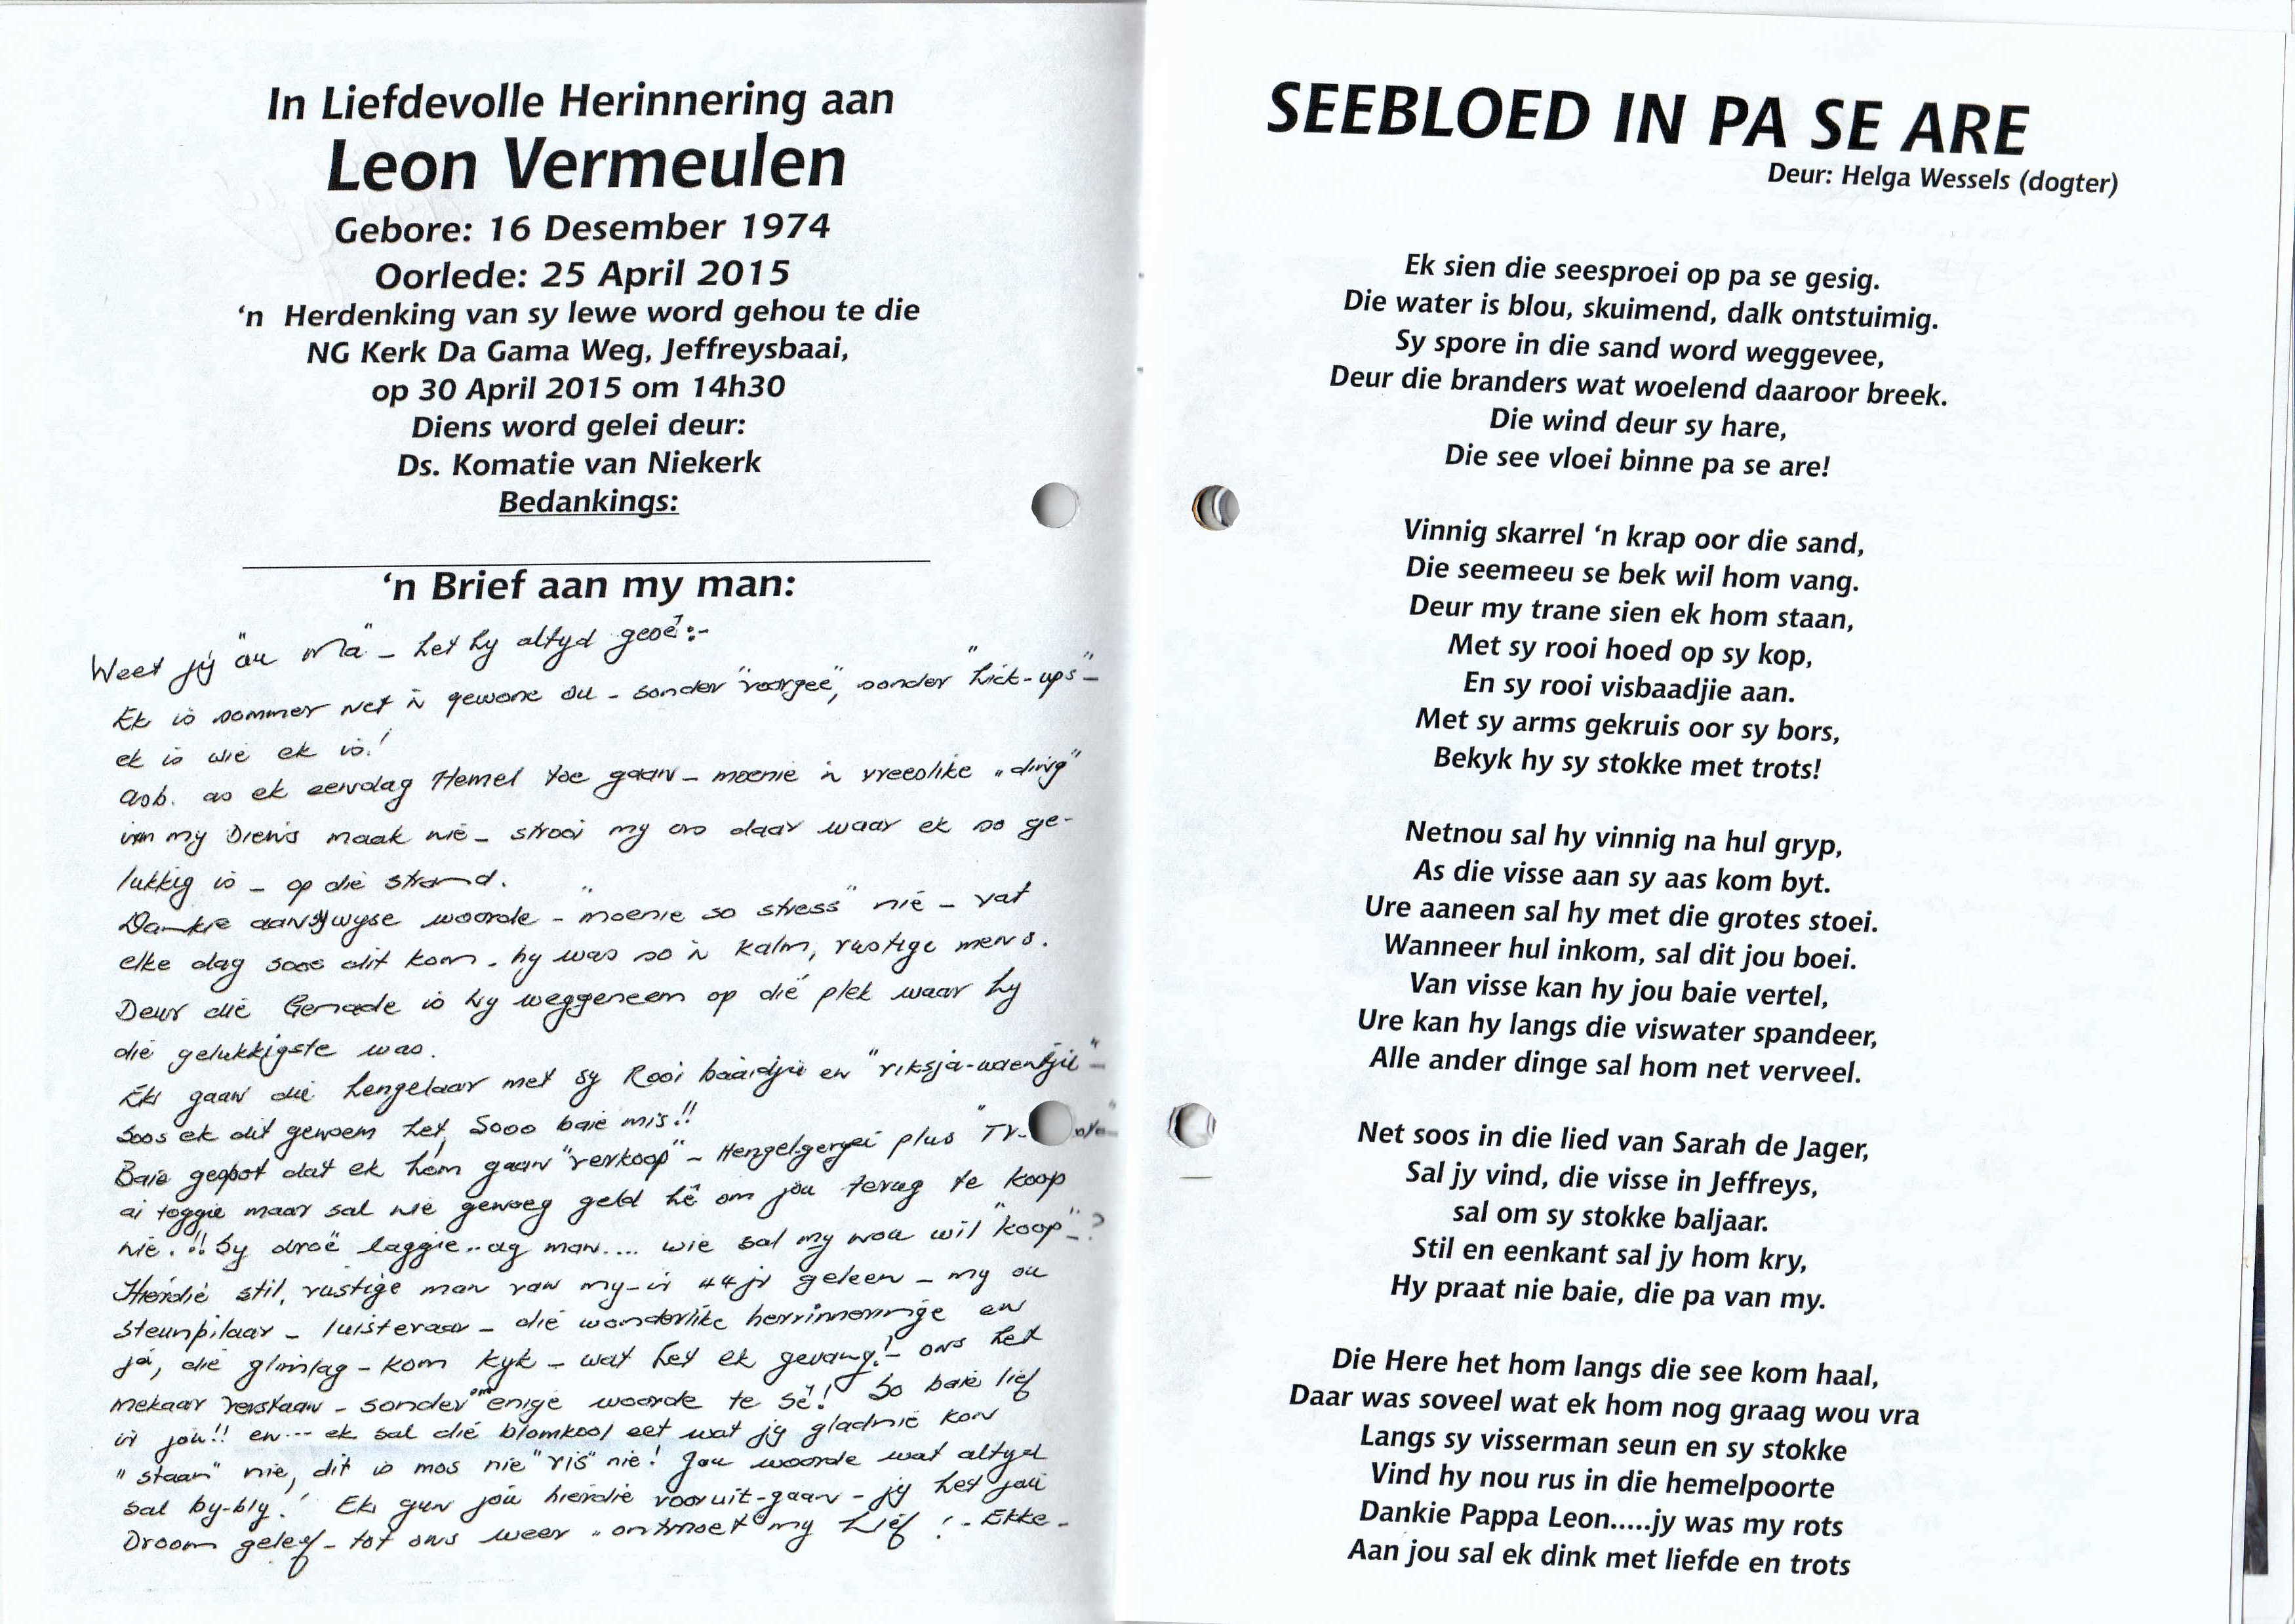 In Liefdevolle Herinnering aan
Leon Vermeulen
Gebore: 16 Desember 1974
Oorlede: 25 April 2015
‘n Herdenking van sy lewe word gehou te die
NG Kerk Da Gama Weg, Jeffreysbaai,
op 30 April 2015 om 14h30
Diens word gelei deur:
Ds. Komatie van Niekerk
Bedankings:
‘n Brief aan my man:
Weet jy "ou Ma" - het hy altyd gesê:-
Ek is sommer net 'n gewone ou - sonder "voorgee", sonder "hick-ups" -
ek is wie ek is!
asb. as ek eendag Hemel toe gaan - moenie 'n vreeslike "ding"
van my Diens maak nie - strooi my as daar waar ek so ge-
lukkig is - op die strand.
Dankie aan sy wyse woorde - "moenie so stress" nie - vat
elke dag soos dit kom - hy was so 'n kalm, rustige mens.
Deur die Genade is hy weggeneem op dié plek waar hy
die gelukkigste was.
Ek gaan die hengelaar met sy Rooi baadjie en "riksja-waentjie" -
soos ek dit genoem het, Sooo baie mis!!
Baie gespot dat ek hom gaan "verkoop" - Hengelgerei plus "TV-
ai toggie maar sal nie genoeg geld hê om jou terug te koop
nie.!! Sy droë laggie.. ag man.... wie sal my nou wil "koop" - ?
Hierdie stil, rustige man van my - is 44 jr geleen - my ou
steunpilaar - luisteraar - die wonderlike herrinneringe en
ja, die glimlag - kom kyk - wat het ek gevang! - ons het
mekaar verstaan - sonder om enige woorde te sê! So baie lief
vi jou!! en --- ek sal die blomkool eet wat jy gladnie kon
"staan" nie, dit is mos nie "vis" nie! Jou woorde wat altyd
sal by-bly! Ek gun jou hierdie vooruit-gaan - jy het jou
Droom geleef - tot ons weer "ontmoet" my Lief ! - Ekke -
SEEBLOED IN PA SE ARE
Deur: Helga Wessels (dogter)
Ek sien die seesproei op pa se gesig.
Die water is blou, skuimend, dalk ontstuimig.
Sy spore in die sand word weggevee,
Deur die branders wat woelend daaroor breek.
Die wind deur sy hare,
Die see vloei binne pa se are!
Vinnig skarrel ‘n krap oor die sand,
Die seemeeu se bek wil hom vang.
Deur my trane sien ek hom staan,
Met sy rooi hoed op sy kop,
En sy rooi visbaadjie aan.
Met sy arms gekruis oor sy bors,
Bekyk hy sy stokke met trots!
Netnou sal hy vinnig na hul gryp,
As die visse aan sy aas kom byt.
Ure aaneen sal hy met die grotes stoei.
Wanneer hul inkom, sal dit jou boei.
Van visse kan hy jou baie vertel,
Ure kan hy langs die viswater spandeer,
Alle ander dinge sal hom net verveel.
Net soos in die lied van Sarah de Jager,
Sal jy vind, die visse in Jeffreys,
sal om sy stokke baljaar.
Stil en eenkant sal jy hom kry,
Hy praat nie baie, die pa van my.
Die Here het hom langs die see kom haal,
Daar was soveel wat ek hom nog graag wou vra
Langs sy visserman seun en sy stokke
Vind hy nou rus in die hemelpoorte
Dankie Pappa Leon.....jy was my rots
Aan jou sal ek dink met liefde en trots